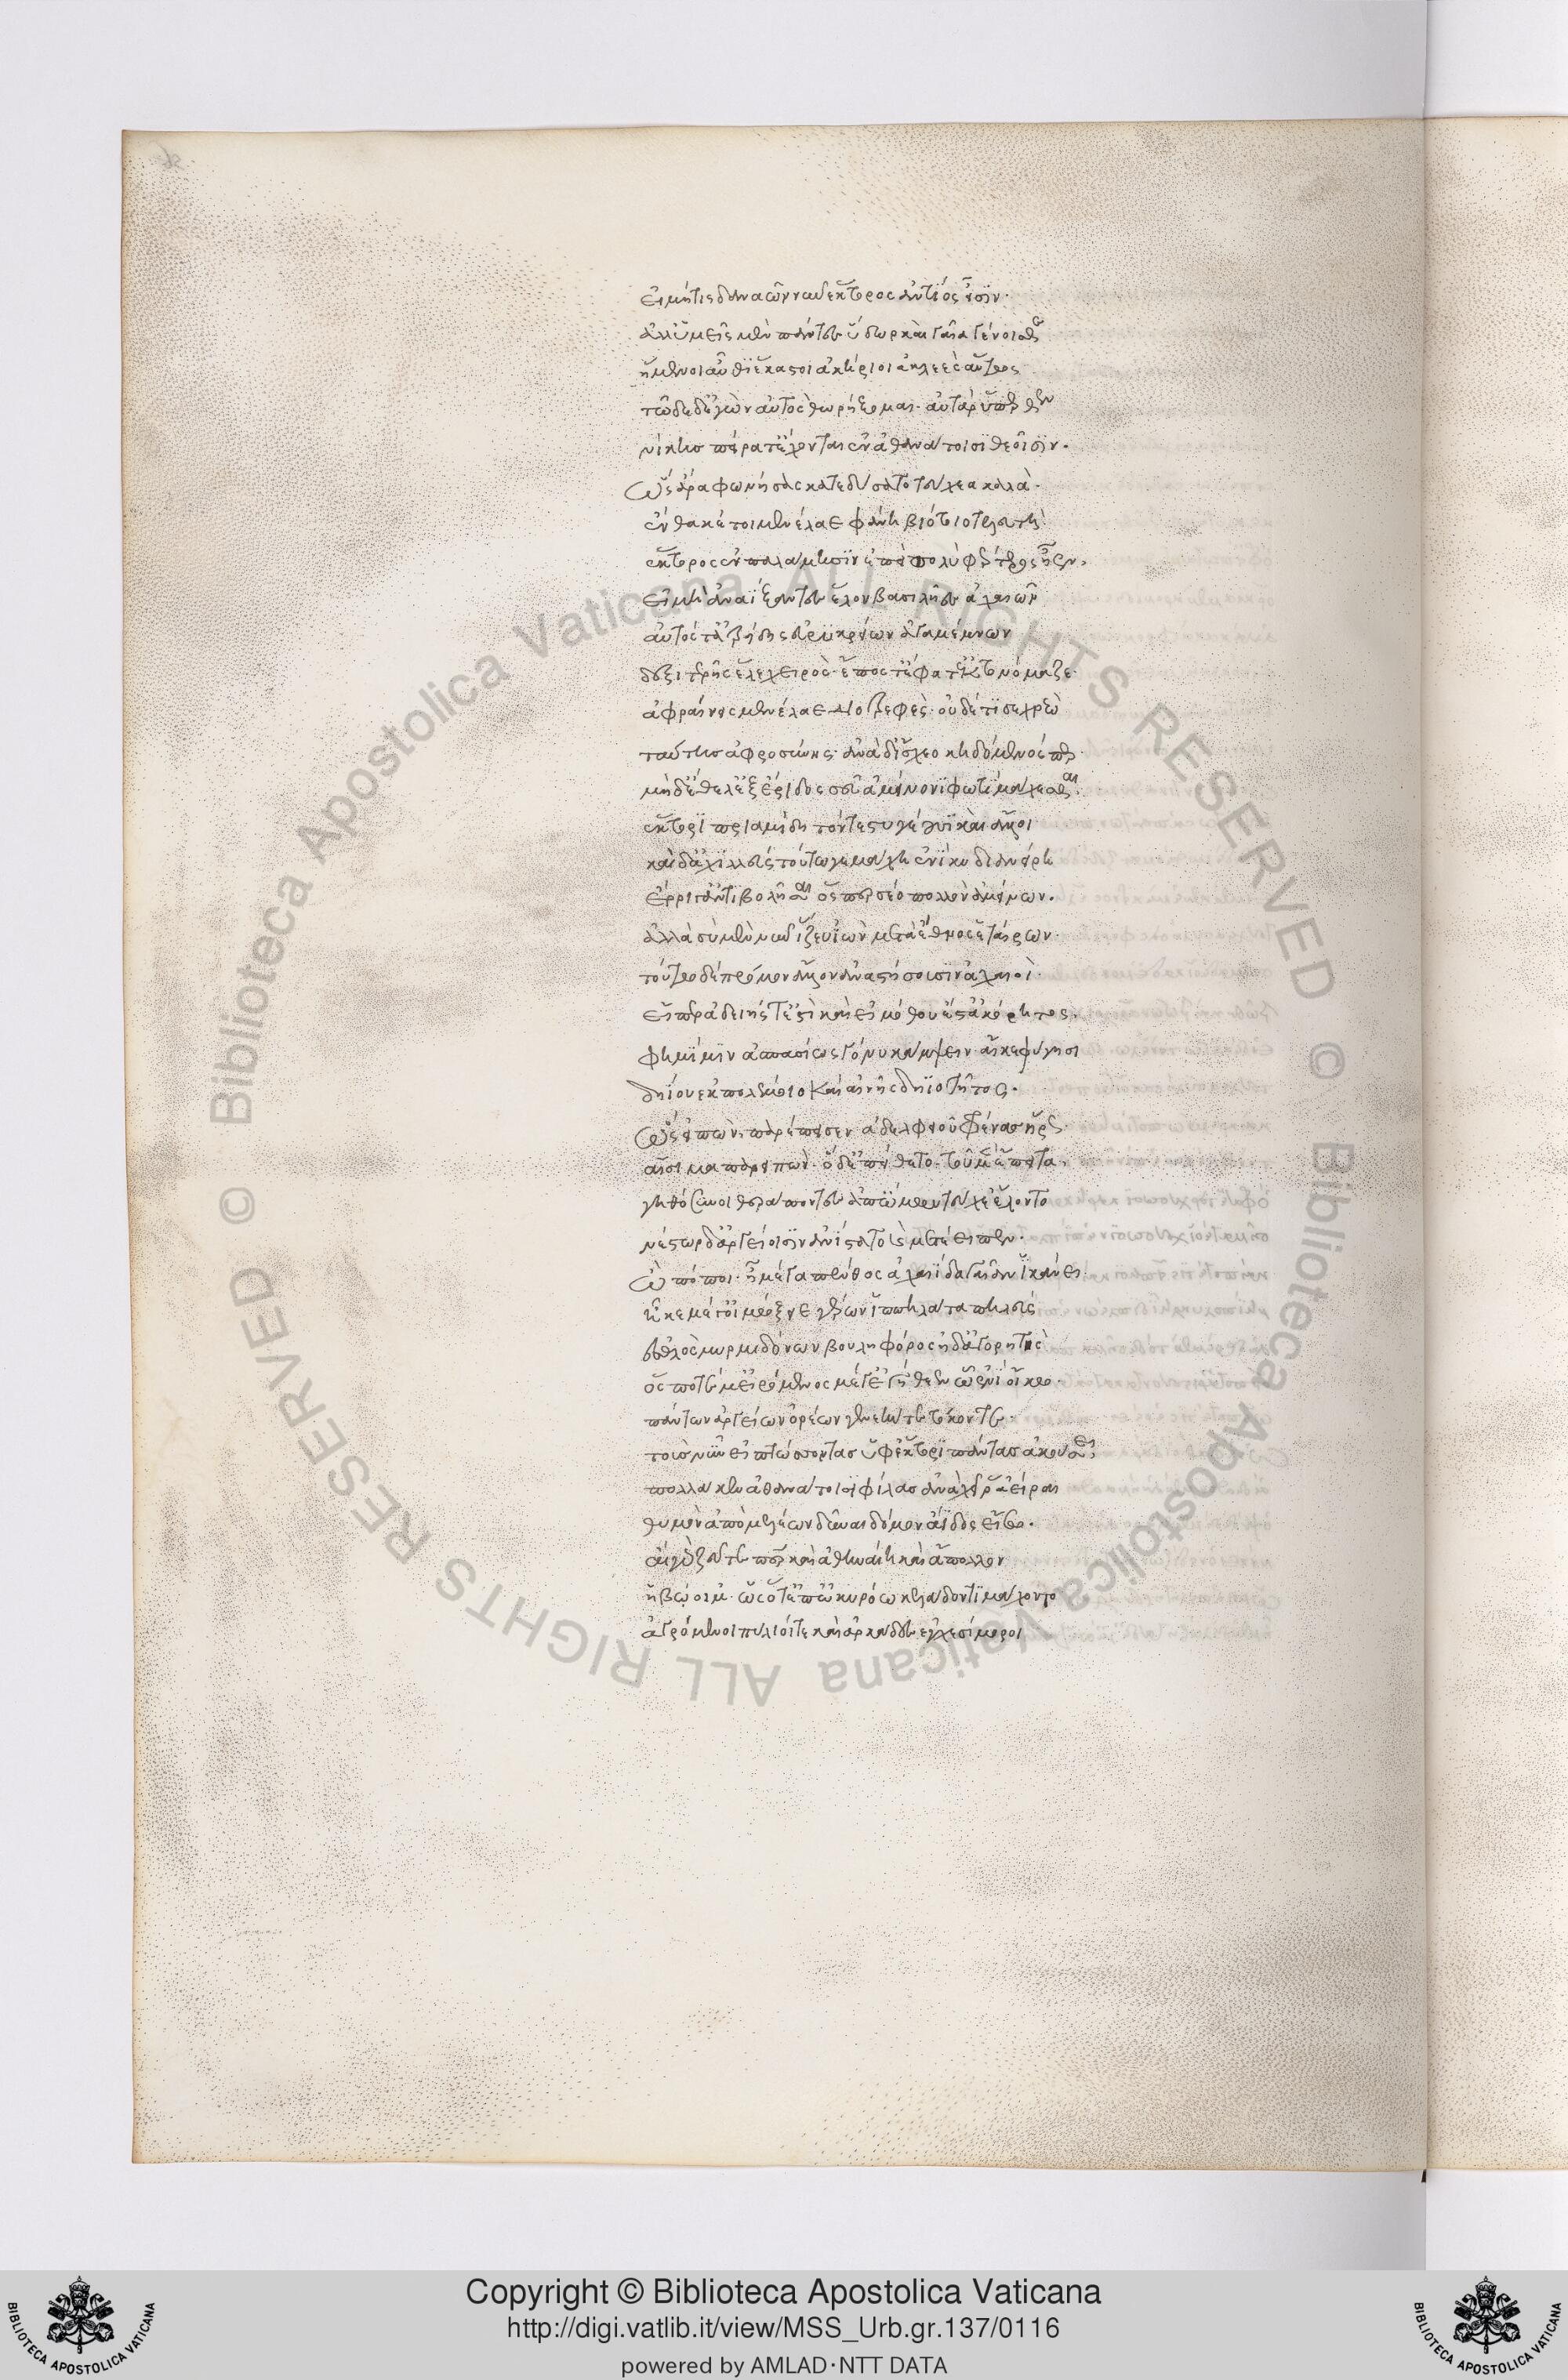 εἰ μήτις δαναῶν νῦν ἕκτορος ἀντίος εἶσιν·
ἀλλ' ὑμεῖς μὲν πάντες ὕδωρ καὶ γαῖα γένοισθε
ἥμενοι αὖθι ἕκαστοι ἀκήριοι ἀκλεὲς αὔτως
τῷδε δ' ἐγὼν αὐτὸς θωρήξομαι· αὐτὰρ ὕπερθεν
νίκης πείρατ' ἔχονται ἐν ἀθανάτοισι θεοῖσιν·
Ὣς ἄρα φωνήσας κατεδύσατο τεύχεα καλά·
ἔνθα κέ τοι μενέλαε φάνη βιότοιο τελευτὴ
ἕκτορος ἐν παλάμησιν ἐπεὶ πολὺ φέρτερος ἦεν·
εἰ μὴ ἀναΐξαντες ἕλον βασιλῆες ἀχαιῶν
αὐτός τ' ἀτρείδης εὐρυκρείων ἀγαμέμνων
δεξιτερῆς ἕλε χειρὸς· ἔπος τ' ἔφατ' ἔκ τ' ὀνόμαζε·
ἀφραίνεις μενέλαε διοτρεφὲς· οὐδέ τί σε χρεὼ
ταύτης ἀφροσύνης· ἀνὰ δ' ἴσχεο κηδόμενός περ·
μὴδ' ἔθελ' ἐξ ἔριδος σεῦ ἀμείνονι φωτὶ μάχεσθαι·
ἕκτορι πριαμίδη τόν τε στυγέουσι καὶ ἄλλοι
καὶ δ' ἀχιλλεὺς τούτω γε μάχη ἔνι κυδιανείρη
ἔρριγ' ἀντιβολῆσαι ὅς περ σέο πολλὸν ἀμείνων·
ἀλλὰ σὺ μὲν νῦν ἵζευ ἰὼν μετὰ ἔθνος ἑταίρων·
τούτω δὲ πρόμον ἄλλον ἀναστήσουσιν ἀχαιοὶ·
εἴπερ ἀδειής τ' ἐστὶ καὶ εἰ μόθου ἔστ' ἀκόρητος·
φημί μιν ἀσπασίως γόνυ κάμψειν· αἴ κε φύγησι
δηΐου ἐκ πολέμοιο καὶ αἰνῆς δηϊοτῆτος·
Ὣς εἰπὼν· παρέπεισεν ἀδελφειοῦ φρένας ἥρως
αἴσιμα παρειπών· ὁ δ' ἐπείθετο· τοῦ μὲν ἔπειτα
γηθόσυνοι θεράποντες ἀπ' ὤμων τεύχε' ἕλοντο
νέστωρ δ' ἀργείοισιν ἀνίστατο καὶ μετέειπεν·
Ὢ πόποι· ἦ μέγα πένθος ἀχαιΐδα γαῖαν ἱκάνει
ἦ κε μέγ' οἰμώξειε γέρων ἱππηλάτα πηλεὺς
ἐσθλὸς μυρμιδόνων βουληφόρος ἠδ' ἀγορητὴς
ὅς ποτέ μ' εἰρόμενος μέγ' ἐγήθεεν ᾧ ἐνὶ οἴκω·
πάντων ἀργείων ἐρέων γενεήν τε τόκον τε·
τοὺς νῦν εἰ πτώσσοντας ὑφ' ἕκτορι πάντας ἀκούσαι
πολλά κεν ἀθανάτοισι φίλας ἀνὰ χεῖρας ἀεῖραι
θυμὸν ἀπὸ μελέων δῦναι δόμον ἄϊδος εἴσω·
αἲ γὰρ ζεῦ τε πάτερ καὶ ἀθηναίη καὶ ἄπολλον
ἡβῷοιμ'· ὡς ὅτ' ἐπ' ὠκυρόω κελάδοντι μάχοντο
ἀγρόμενοι πύλιοί τε καὶ ἀρκάδες ἐγχεσίμωροι
Copyright © Biblioteca Apostolica Vaticana
http://digi.vatlib.it/view/MSS_Urb.gr.137/0116
powered by AMLAD·NTT DATA